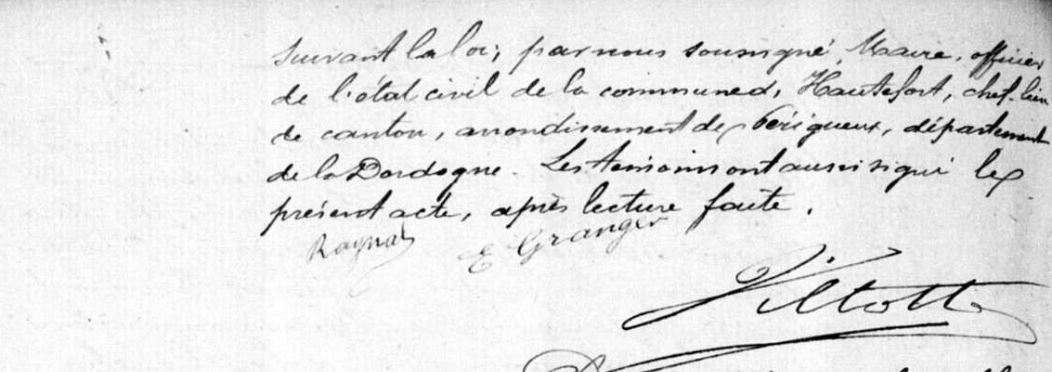 suivant la loi, par nous soussigné, Maire, officier
de l'état civil de la commune d, Hautefort, chef-lieu
de canton, arrondissement de Périgueux, département
de la Dordogne. Les témoins ont aussi signé le
présent acte, après lecture faite.
Raynal E Granger